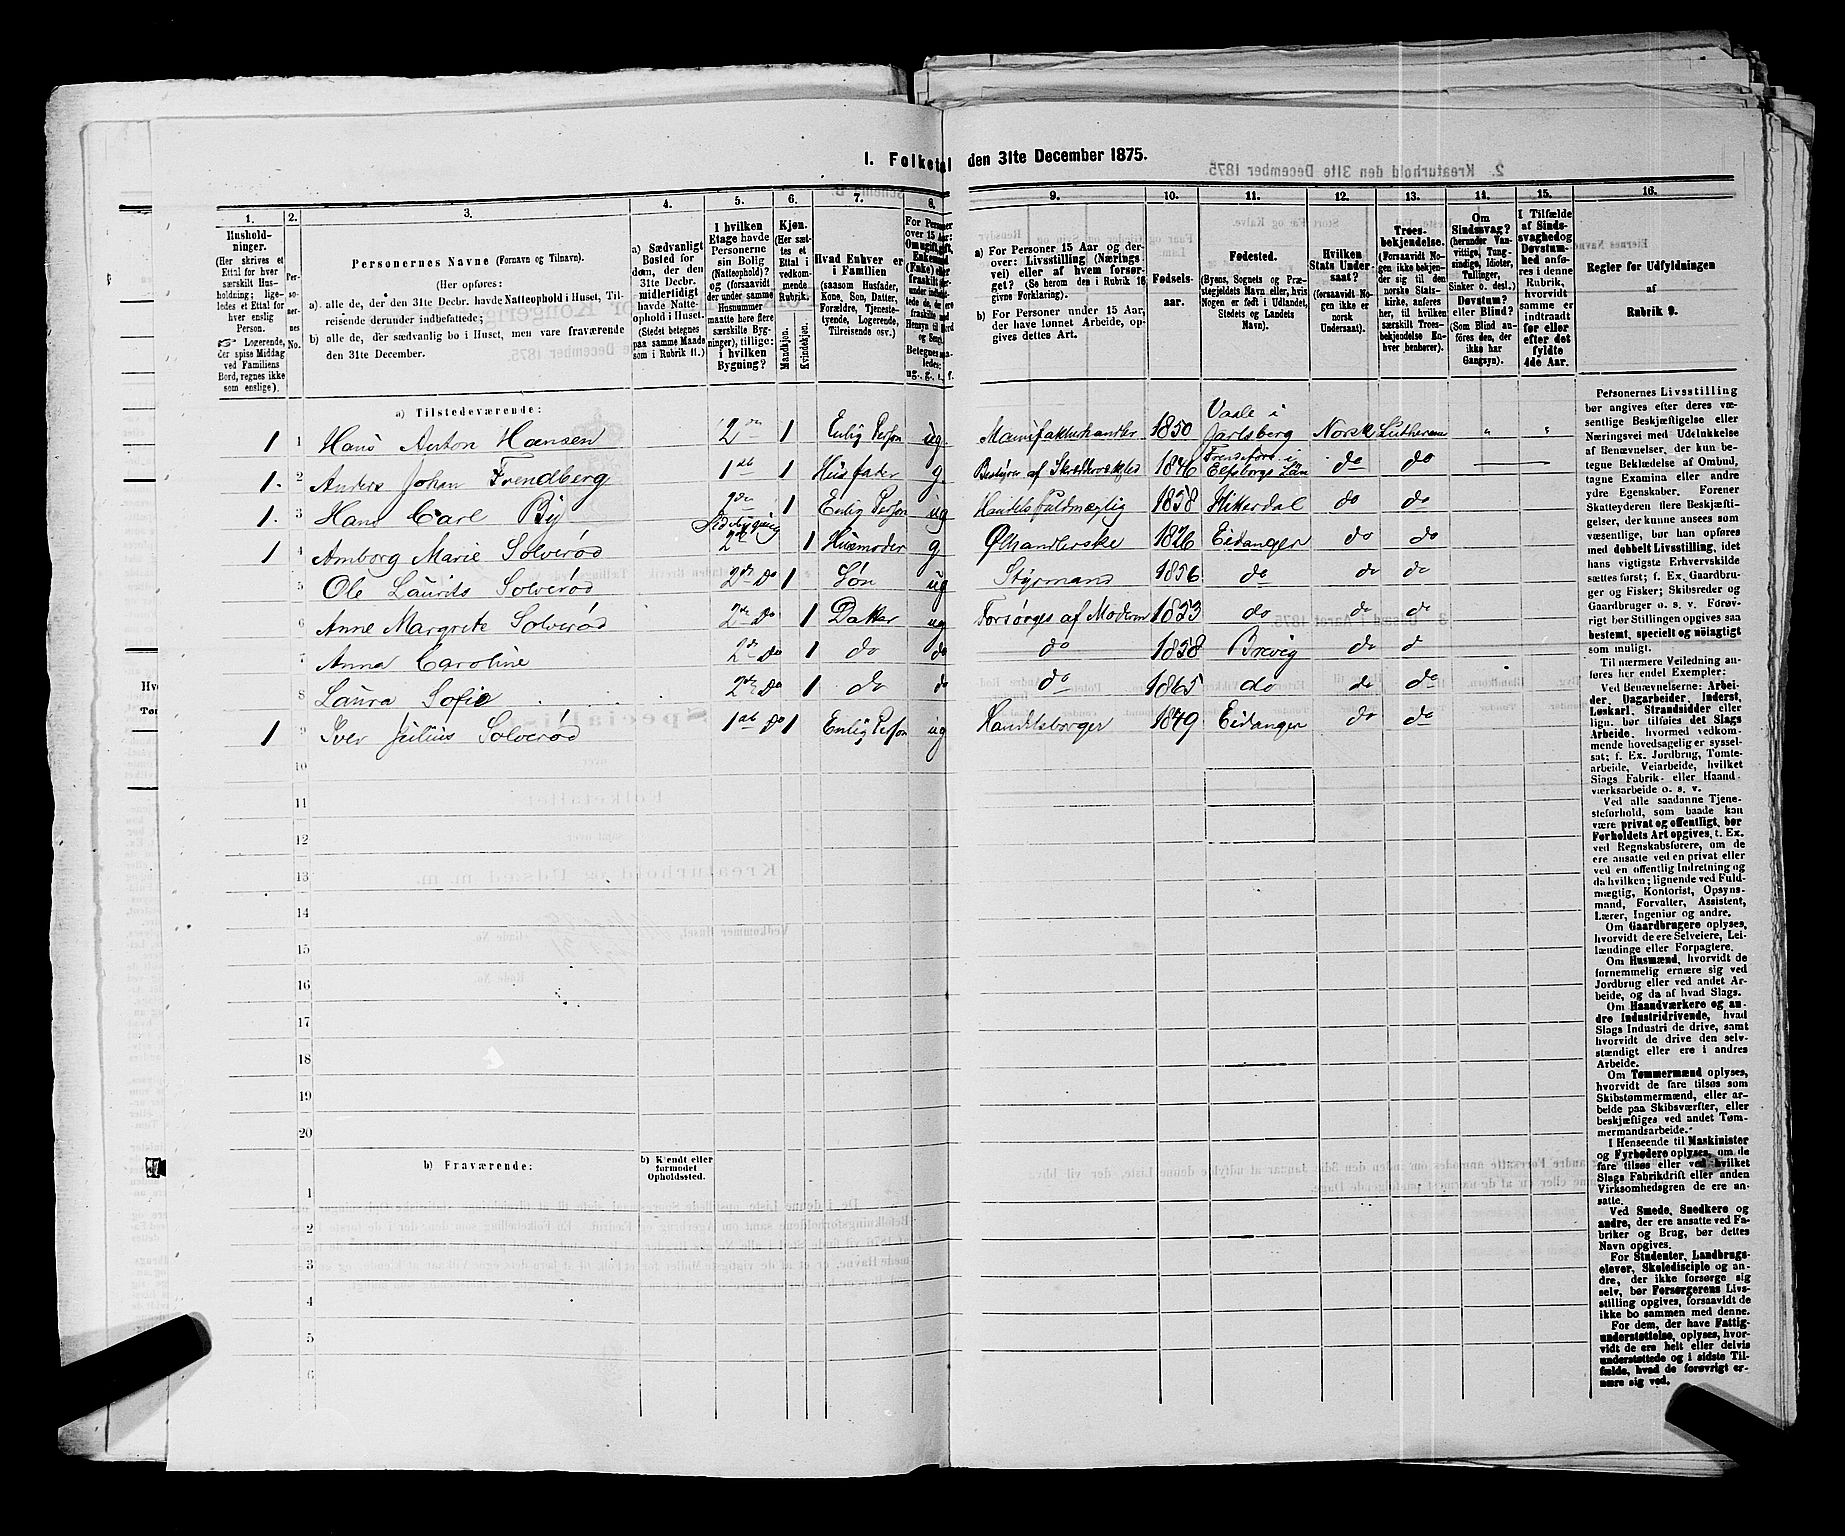 1. Folketal den 31te December 1875.
1. 2. 3. 4. 5. 6. 7. 8. 9. 10. 11. 12. 13. 14. 15. 16.
Hushold-
ninger.
(Her skrives et
Ettal for hver
særskilt Hus-
holdning; lige-
ledes et Ettal for
hver enslig
Person.
Logerende,
der spise Middag
ved Familiens
Bord, regnes ikke
som enslige).
Per-
so-
ner-
nes
No.
Personernes Navne (Fornavn og Tilnavn).
(Her opføres:
a). alle de, der den 31te Decbr. havde Natteophold i Huset, Til-
reisende derunder indbefattede;
b) alle de, der sædvanlig bo i Huset, men vare fraværende
den 31te December.
a) Sædvanligt
Bosted for
dem, der den
31te Decbr.
midlertidigt
havde Natte-
ophold i Huset.
(Stedet betegnes
paa samme Maade
som i Rubrik 11.)
I hvilken
Etage havde
Personerne
sin Bolig
(Natteophold)?
og (forsaavidt
der under samme
Husnummer
maatte høre flere
særskilte Byg-
ninger), tillige:
i hvilken
Bygning?
Kjøn.
(Her sæt-
tes et
Ettal i
vedkom-
mende
Rubrik.
Mandkjøn.
Kvindekjøn.
Hvad Enhver er
i Familien
(saasom Husfader,
Kone, Søn, Datter,
Forældre, Tjeneste-
tyende, Logerende,
Tilreisende osv.)
For Personer
over 15 Aar:
ug., g.,
a) For Personer 15 Aar og der-
over: Livsstilling (Nærings-
vei) eller af hvem forsør-
get? (Se herom den i Rubrik 16
givne Forklaring).
b) For Personer under 15 Aar,
der have lønnet Arbeide, op-
gives dettes Art.
Fødsels-
aar.
Fødested.
(Byens, Sognets og Præ-
stegjeldets Navn eller, hvis
Nogen er født i Udlandet,
Stedets og Landets
Navn).
Hvilken
Stats Under-
saat?
(forsaavidt No-
gen ikke er
norsk
Undersaat).
Troes-
bekjendelse.
(Forsaavidt No-
gen ikke bekjen-
der sig til den
norske Stats-
kirke, anføres
her, til hvilken
særskilt Troes-
bekjendelse En-
hver henhører).
Om
Sindssvag?
(herunder Van-
vittige, Tung-
sindige, Idioter,
Tullinger,
Sinker o. desl.)
Døvstum?
eller Blind?
(Som Blind an-
føres den, der
ikke har
Gangsyn).
I Tilfælde
af Sinds-
svaghed og
Døvstum-
hed anfø-
res i denne
Rubrik,
hvorvidt
samme er
indtraadt
før eller
efter det
fyldte
4de Aar.
Regler for Udfyldningen
af
Rubrik 9.
a) Tilstedeværende:
1 1 Hans Anton Hansen 2den 1 Enlig Person ug. Manifakturhandler 1850 Vaale i Jarlsberg Norsk Lutheran " "
1. 2 Anders Johan Frendberg 1ste 1 Husfader g. Bestyrer af 1846 i Elfsborgs Län do do
1. 3 Hans Carl By 2den 1 Enlig Person ug Handelsfuldmægtig 1858 Hitterdal do do
1 4 Amborg Marie Solverød Sidebygning 2de 1 Husmoder g Ølhandlerske 1826 Eidanger do do
5 Ole Laurits Solverød 2de Do 1 Søn ug Styrmand 1856 do do do
6 Anne Margrete Solverød 2de Do 1 Datter ug Forsørges af Moderen 1853 do do do
7 Anna Caroline 2de Do 1 do do do 1858 Brevig do d
8 Laura Sofie 2de Do 1 do do do 1865 do do do
1 9 Iver Julius Solverød 1ste Do 1 Enlig Person ug Handelsborger 1849 Eidanger do do
10
11
12
13
14
16
17
18
19
20
b) Fraværende:
b) Kjendt eller
formodet
Opholdssted.
1
2
3
4
5
6
Personernes Livsstilling
bør angives efter deres væ-
sentlige Beskjæftigelse eller
Næringsvei med Udelukkelse
af Benævnelser, der kun be-
tegne Beklædelse af Ombud,
tagne Examina eller andre
ydre Egenskaber. Forener
Skatteyderen flere Beskjæfti-
gelser, der kunne ansees som
væsentlige, bør han opføres
med dobbelt Livsstilling, idet
hans vigtigste Erhvervskilde
sættes først; f. Ex. Gaardbru-
ger og Fisker; Skibsreder og
Gaardbruger o. s. v. Forøv-
rigt bør Stillingen opgives saa
bestemt, specielt og nøiagtigt
som muligt.
Til nærmere Veiledning an-
føres her endel Exempler:
Ved Benævnelserne: Arbei-
der, Dagarbeider, Inderst,
Løskarl, Strandsidder eller
lign. bør tilføies det Slags
Arbeide, hvormed vedkom-
mende hovedsagelig er syssel-
sat; f. Ex. Jordbrug, Tomte-
arbeide, Veiarbeide, hvilket
Slags Fabrik- eller Haand-
værksarbeide o. s. v.
Ved alle saadanne Tjene-
steforhold, som baade kan
være privat og offentligt, bør
Forholdets Art opgives, t. Ex.
ved Regnskabsførere, om de
ere ansatte ved en privat eller
ved en offentlig Indretning og
da hvilken; lignende ved Fuld-
mægtig, Kontorist, Opsyns-
mand, Forvalter, Assistent,
Lærer, Ingeniør og andre.
Om Gaardbrugere oplyses,
hvorvidt de ere Selveiere, Lei-
lændinge eller Forpagtere.
Om Husmænd, hvorvidt de
fornemmelig ernære sig ved
Jordbrug eller ved andet Ar-
beide, og da af hvad Slags.
Om Haandværkere og an-
dre Industridrivende, hvad
Slags Industri de drive, samt
hvorvidt de drive den selv-
stændigt eller ere i andres
Arbeide.
Om Tømmermænd oplyses,
hvorvidt de fare tilsøs som
Skibstømmermænd, eller ar-
beide paa Skibsværfter, eller
beskjæftiges ved andet Tøm-
mermandsarbeide.
I Henseende til Maskinister
og Fyrbødere oplyses, om de
fare tilsøs eller ved hvilket
Slags Fabrikdrift eller anden
Virksomhedsgren de ere an-
satte.
Ved Smede, Snedkere og
andre, der ere ansatte ved Fa-
briker og Brug, bør dettes
Navn opgives.
For Studenter, Landbrugs-
elever, Skoledisciple og an-
dre, der ikke forsørge sig
selv, bør Forsørgerens Livs-
stilling opgives, forsaavidt de
ikke bo sammen med denne.
For dem, der have Fattig-
understøttelse, oplyses, hvor-
vidt de ere helt eller delvis
understøttede og i sidste Til-
fælde, hvad de forøvrigt er-
nære sig ved.